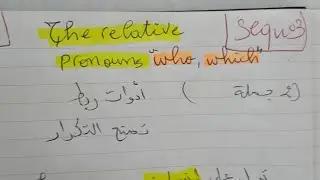 The relative
Sequ03
pronouns "who, which"
أدوات ربط (2 جملة)
تمنع التكرار